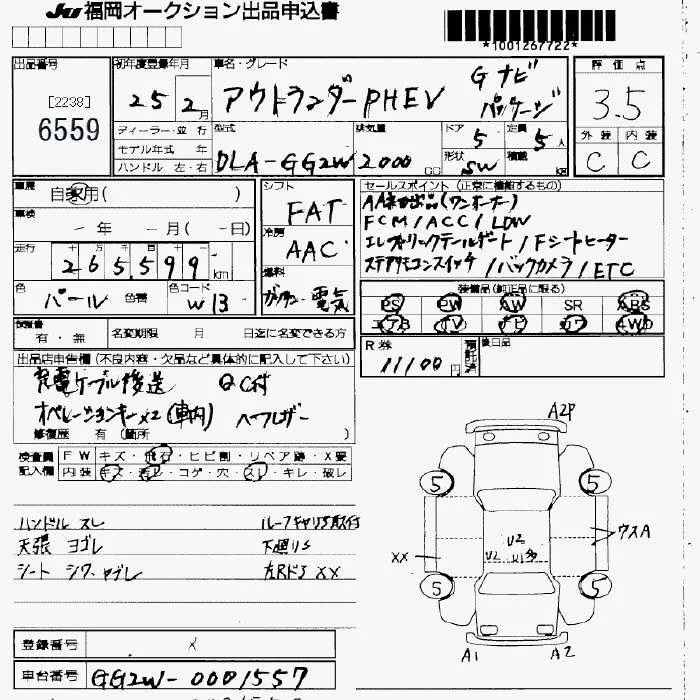 JU 福岡オークション出品申込書
*1001267722*
出品番号 初年度登録年月 車名・グレード 評価点
[2238] 6559
25 2月
アウトランダーPHEV Gナビパッケージ
3.5
ディーラー・並行 型式 排気量 ドア 5 定員 5人 外装 内装
モデル年式 年
ハンドル 左・右 DLA-GG2W 2000 CC 形状 SW 積載 C C
車歴 自家用( ) シフト FAT セールスポイント (正常に機能するもの)
車検 - 年 - 月 (-日) 冷房 AAC
FCM/ACC/LDW
エレクトリックテールゲート/Fシートヒーター
ステアリモコンスイッチ/バックカメラ/ETC
走行 265,599km 燃料 ガソリン・電気
色 パール 色替 色コード W13
装備品(純正品に限る)
PS PW AW SR ABS
エアB TV ナビ カワ 4WD
保証書 有・無 名変期限 月 日迄に名変できる方
R券 11100円 預託済 後日品
出品店申告欄 (不良内容・欠品など具体的に記入して下さい)
充電ケーブル後送 QC付
オペレーションキー×2(車内) ヘッドレザー
修復歴 有 (箇所 )
検査員記入欄 FW キズ・飛石・ヒビ割・リペア跡・X要
内装 キズ・汚レ・コゲ・穴・スレ・キレ・破レ
ハンドル スレ ルーフキャリS取付
天張 ヨゴレ 下廻りS
シート シワ、ヤブレ 左RドS XX
A2P
5 5
XX U2 U2 U1多 ウスA
5 5
A1 A2
登録番号 ×
車台番号 GG2W-0001557